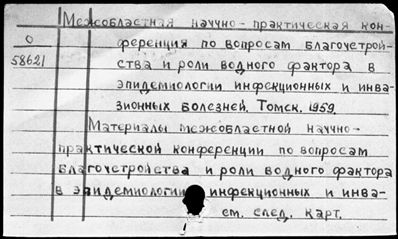 Межобластная научно-практическая кон-
О ференция по вопросам благоустрой-
58621 ства и роли водного фактора в
эпидемиологии инфекционных и инва-
зионных болезней. Томск. 1959.
Материалы межобластной научно-
практической конференции по вопросам
благоустройства и роли водного фактора
в эпидемиологии инфекционных и инва-
см. след. карт.